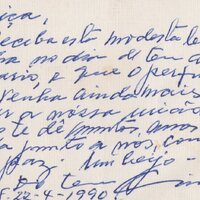 ça,
receba esta modesta le
no dia de teu a
ário, e que o perfu
venha ainda mais
a nossa união
te dê muitos anos
junto a nós, com
paz. Um beijo.
Do teu
22-4-1990